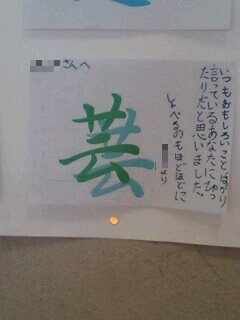 さんへ
芸
いつもおもしろいことばかり
言っているあなたにぴっ
たりだと思いました。
しゃべるのもほどほどに
より